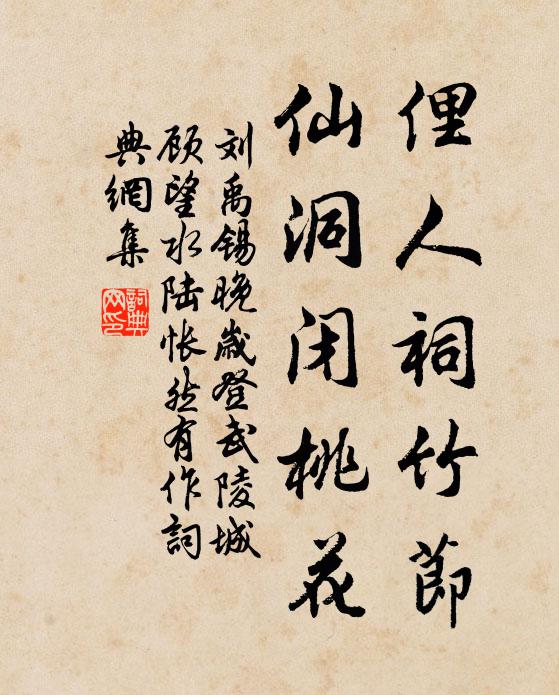 俚人祠竹節
仙洞闭桃花
刘禹锡晚歲登武陵城
顾望水陆怅然有作詞
典網集
詞典網印